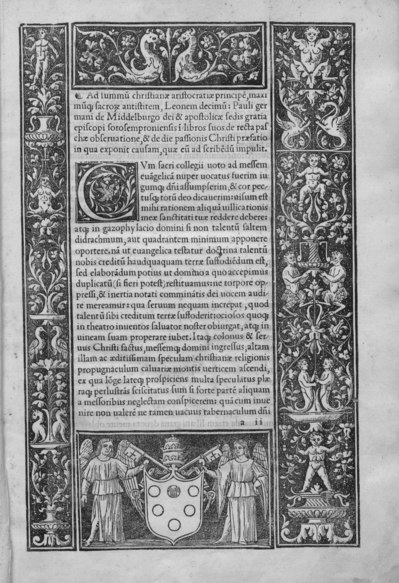 Ad summũ christianæ aristocratiæ principẽ, maxi
mũq; sacroꝝ antistitem, Leonem decimũ: Pauli ger
mani de Middelburgo dei & apostolicæ sedis gratia
episcopi forosemproniensis ĩ libros suos de recta pas
chæ obseruatione, & de die passionis Christi præfatio
in qua exponit causam, quæ eũ ad scribẽdũ impulit.
CVm sacri collegii uoto ad messem
euãgelicã nuper uocatus fuerim iu
gumq; dñi assumpserim, & cor pec
tusq; totũ deo dicauerim: uisum est
mihi rationem aliquã uillicationis
meæ sanctitati tuæ reddere debere:
atq; in gazophylacio domini si non talentũ saltem
didracmum, aut quadrantem minimum apponere
oportere. nã ut euangelica testatur doctrina talentũ
nobis creditũ haudquaquam terræ sustodiẽdum est,
sed elaborãdum potius ut domino a quo accepimus
duplicatũ (si fieri potest) restituamus: ne torpore op
pressi, & inertia notati comminãtis dei uocem audi
re mereamur: qua seruum nequam increpat, quod
talentũ sibi creditum terræ
in theatro inuentos saluator noster obiurgat, atq; in
uineam suam properare iubet. Itaq; colonus & ser
uus Christi factus, messemq; domini ingressus, altam
illam ac æditissimam speculam christianæ religionis
propugnaculum caluariæ montis uerticem ascendi,
ex qua lõge lateq; prospiciens multa speculatus pluraq; perlustrãs sciscitatus sum si forte partẽ aliquam
a messoribus neglectam conspicerem: quã cum inue
nire non ualerẽ ne tamen uacuus tabernaculum dñi
a ii